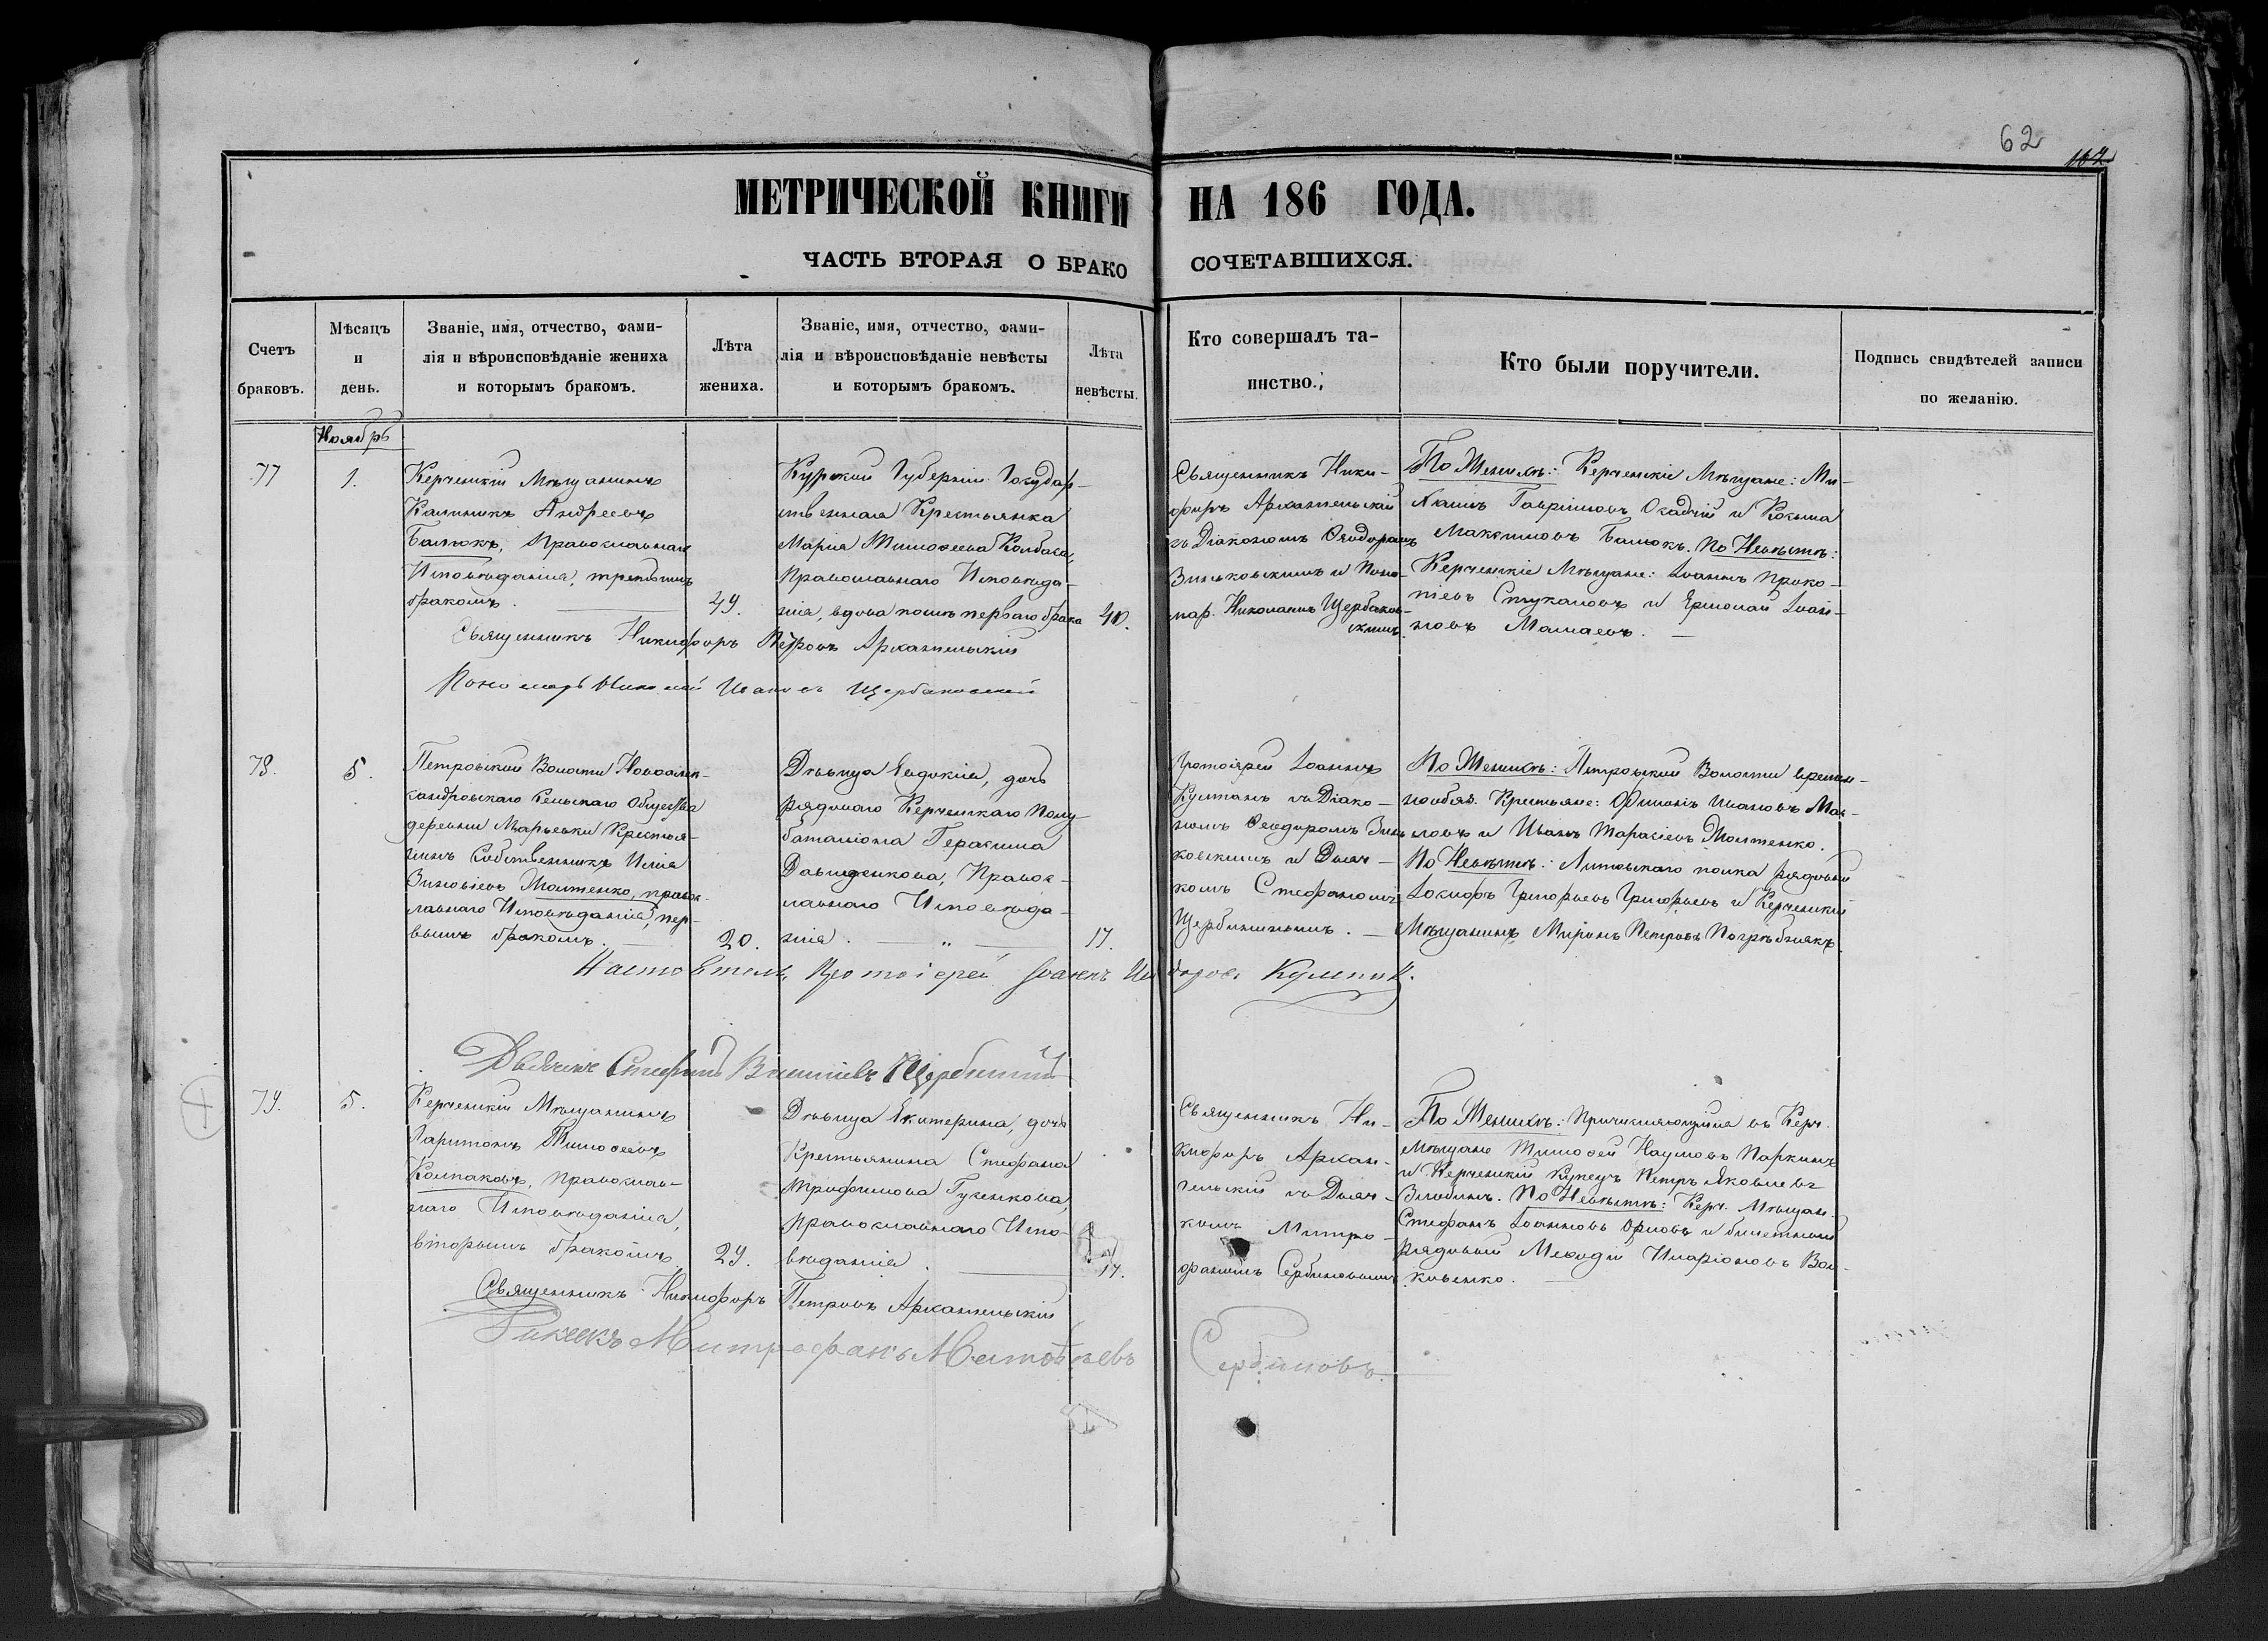 62
102
МЕТРИЧЕСКОЙ КНИГИ НА 186 ГОДА.
ЧАСТЬ ВТОРАЯ О БРАКО СОЧЕТАВШИХСЯ.
Счетъ
браковъ.
Мѣсяцъ
и
день.
Званіе, имя, отчество, фами-
лія и вѣроисповѣданіе жениха
и которымъ бракомъ.
Лѣта
жениха.
Званіе, имя, отчество, фами-
лія и вѣроисповѣданіе невѣсты
и которымъ бракомъ.
Лѣта
невѣсты.
Кто совершалъ та-
инство.
Кто были поручители.
Подпись свидѣтелей записи
по желанію.
Ноябрь
77
1.
Керченскій Мѣщанинъ
Калиникъ Андреевъ
Балюкъ, Православнаго
Исповѣданія, третьимъ
бракомъ.
49.
Курской Губерніи Государ-
ственная Крестьянка
Марія Тимоѳеева
Православнаго Исповѣда-
нія, вдова послѣ перваго брака
40.
Священникъ Ники-
форъ Архангельскій
съ Діакономъ Ѳеодоромъ
Зиньковскимъ и Поно-
мар. Николаемъ Щербаков-
скимъ.
По Женихѣ: Керченскіе Мѣщане: Ми-
хаилъ Гавріиловъ Осадчій и Косьма
Максимовъ Балюкъ. По Невѣстѣ:
Керченскіе Мѣщане: Іоаннъ Проко-
піевъ Стукаловъ и Ермолай Іоан-
новъ Мамаевъ.
Священникъ Никифоръ Петровъ Архангельскій
Пономарь Николай Ивановъ Щербаковскій
78.
5.
Петровской Волости Новоалек-
сандровскаго Сельскаго Общества
деревни Марьевки Крестья-
нинъ Собственникъ Илія
Зиновіевъ Желтенко, правос-
лавнаго Исповѣданія, пер-
вымъ бракомъ.
20.
Дѣвица Евдокія, дочь
рядоваго Керченскаго Полу-
баталіона Герасима
Давиденкова, Правос-
лавнаго Исповѣда-
нія.
17.
Протоіерей Іоаннъ
Кулпанъ съ Діако-
номъ Ѳеодоромъ Зинь
ковскимъ и Дьяч-
комъ Стефаномъ
Щербининымъ.
По Женихѣ: Петровской Волости времен-
нообяз. Крестьяне: Филипъ Ивановъ Мас-
ловъ и Иванъ Тарасіевъ Желтенко.
По Невѣстѣ: Литовскаго полка рядовый
Іосифъ Григорьевъ Григорьевъ и Керченскій
Мѣщанинъ Миронъ Петровъ Погрѣбнякъ.
Настоятель, Протоіерей Іоаннъ
Дьячекъ Стефанъ Василіевъ Щербининъ
79.
5.
Керченскій Мѣщанинъ
Харитонъ Тимоѳеевъ
Колпаковъ, Православ-
наго Исповѣданія,
вторымъ бракомъ
29.
Дѣвица Екатерина, дочь
Крестьянина Стефана
Трифонова Гусенкова,
Православнаго Испо-
вѣданія.
17.
Священникъ Ни-
кифоръ Архан-
гельскій съ Дьяч-
комъ Митро-
фаномъ Сербиновымъ
По Женихѣ: Причисляющійся въ Керч.
Мѣщане Тимоѳей Наумовъ Паркинъ
и Керченскій Купецъ Петръ Яковлевъ
Злобинъ. По Невѣстѣ: Керч. Мѣщан.
Стефанъ Іоанновъ Орловъ и билетный
Рядовый Меѳодій Иларіоновъ Вол-
ковенко.
Священникъ Никифоръ Петровъ Архангельскій
Дьячекъ Митрофанъ Матѳѣевъ Сербиновъ.